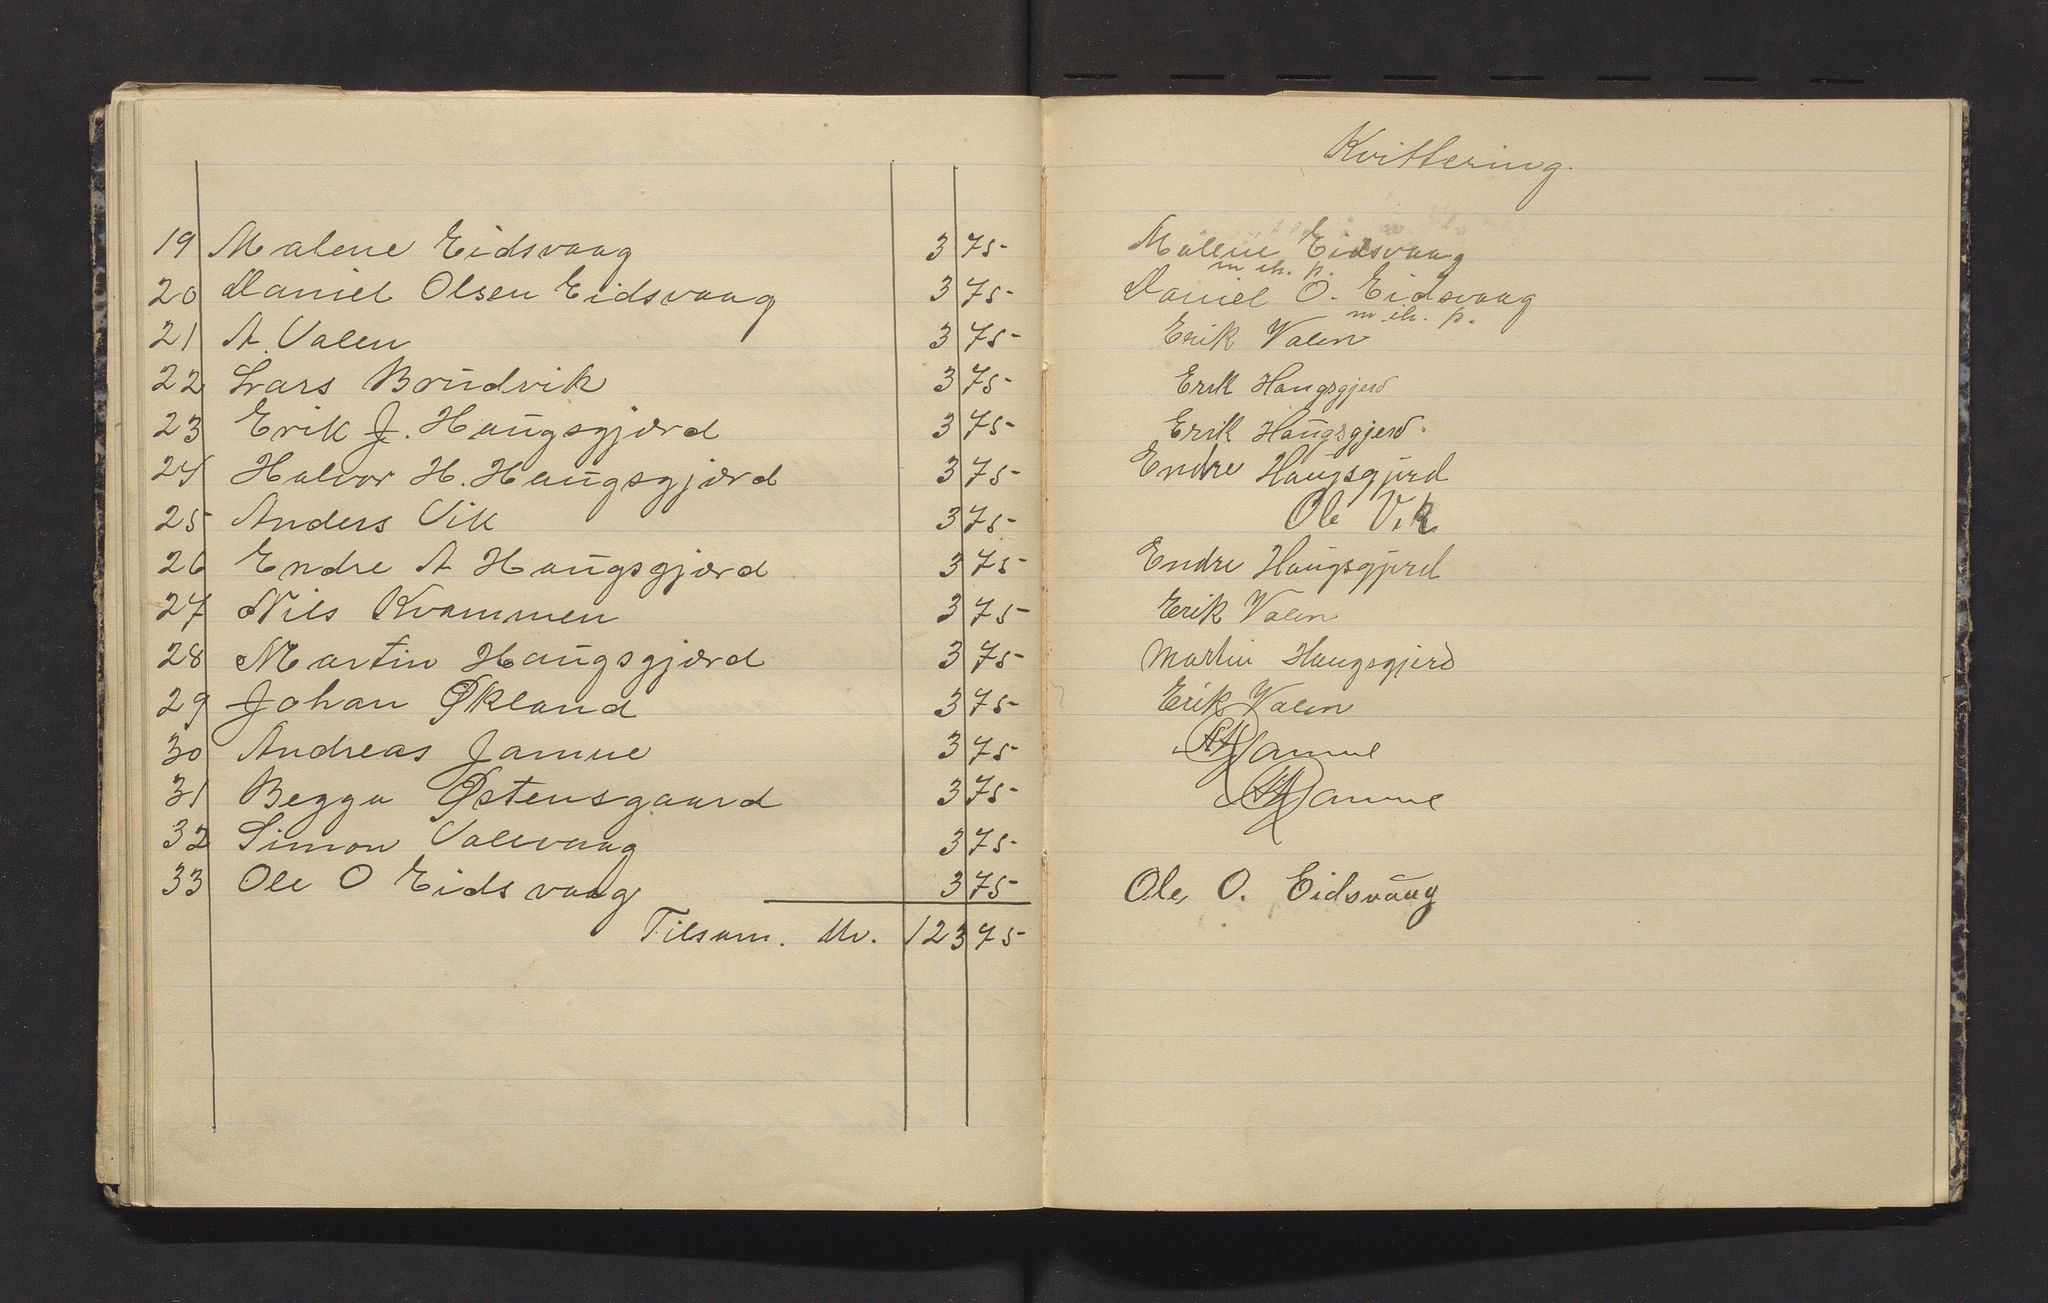 19 Malene Eidsvaag 3 75
20 Daniel Olsen Eidsvaag 3 75
21 A. Valen 3 75
22 Lars Brudvik 3 75
23 Erik J. Haugsgjærd 3 75
24 Halvor H. Haugsgjærd 3 75
25 Anders Vik 3 75
26 Endre A Haugsgjærd 3 75
27 Nils Kvammen 3 75
28 Martin Haugsgjærd 3 75
29 Johan Økland 3 75
30 Andreas Jamne 3 75
31 Begga Østensgaard 3 75
32 Simon Valevaag 3 75
33 Ole O Eidsvaag 3 75
Tilsam. Kr. 123 75
Kvittering.
Malene Eidsvaag
m ih. p.
Daniel O. Eidsvaag
m ih. p.
Erik Valen
Erik Haugsgjerd
Erik Haugsgjerd.
Endre Haugsgjerd
Ole Vik
Endre Haugsgjerd
Erik Valen
Martin Haugsgjerd
Erik Valen
Jamne
Jamne
Ole, O. Eidsvaag